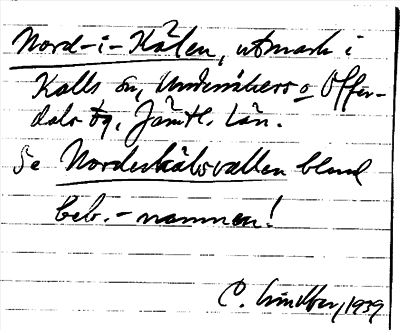 Nord-i-Kälen, utmark i
Kalls sn, Undersåkers o Offer-
dals tg, Jämtl. Län.
Se Norderkälsvallen bland
beb.-namnen!
C. Lindberg, 1939